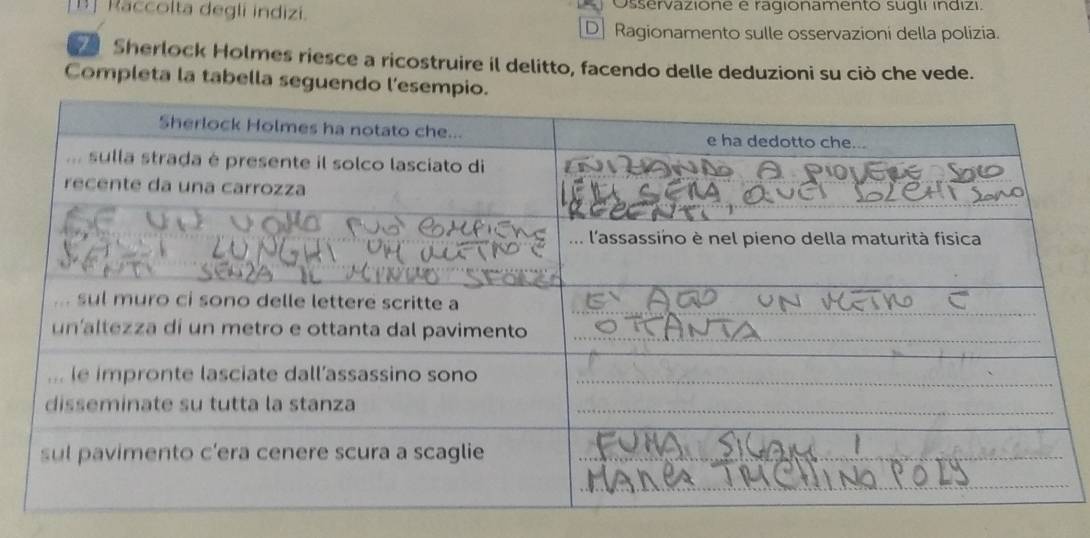 Raccolta degli indizi.
Osservazione e ragionamento sugli indizi.
D Ragionamento sulle osservazioni della polizia.
7 Sherlock Holmes riesce a ricostruire il delitto, facendo delle deduzioni su ciò che vede.
Completa la tabella seguendo l'esempio.
Sherlock Holmes ha notato che...
e ha dedotto che...
... sulla strada è presente il solco lasciato di
recente da una carrozza
A PIOVERE SOLO
IERI SERA, QUEI SOLCHI SONO
RECENTI
SE UN UOMO PUÒ COMPIERE
LUNGHI UN METRO E
SENZA IL MINIMO SFORZO
... l'assassino è nel pieno della maturità fisica
... sul muro ci sono delle lettere scritte a
un'altezza di un metro e ottanta dal pavimento
UN METRO E
OTTANTA
... le impronte lasciate dall'assassino sono
disseminate su tutta la stanza
sul pavimento c'era cenere scura a scaglie
FUMA